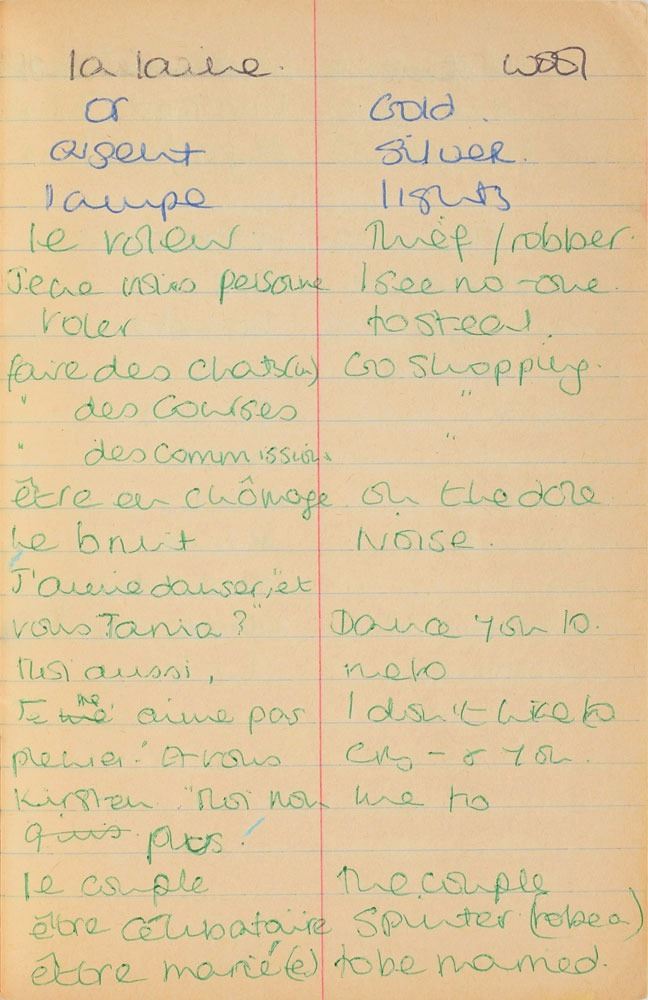 la laine. wool
or Gold.
argent silver.
lampe lights
le voleur thief / robber.
Je ne vois personne I see no-one.
voler to steal.
faire des chats(m) Go shopping.
" des Courses "
" des Commissions "
être en chômage on the dole
Le bruit Noise.
J'aime danser, et
vous Tania?" Dance you to.
Moi aussi, me to
Je ne aime pas I don't like to
pleurer." Et vous Cry - & you.
Kirsten "Moi non me to
plus.
le couple the couple
être célibataire spinster (to be a)
être marié(e) to be married.